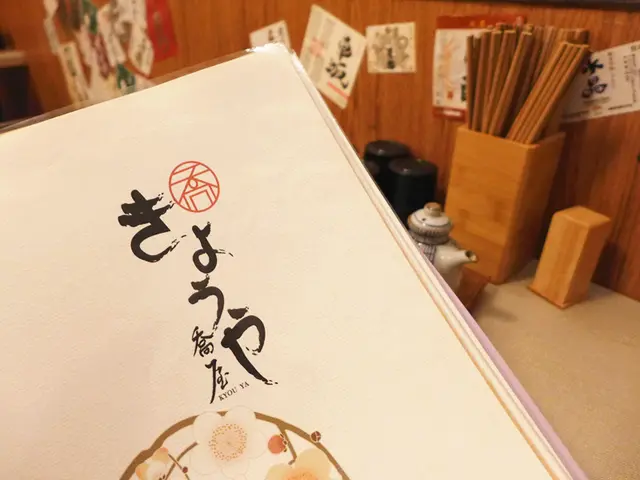 喬
きょうや
喬屋
KYOU YA
水晶